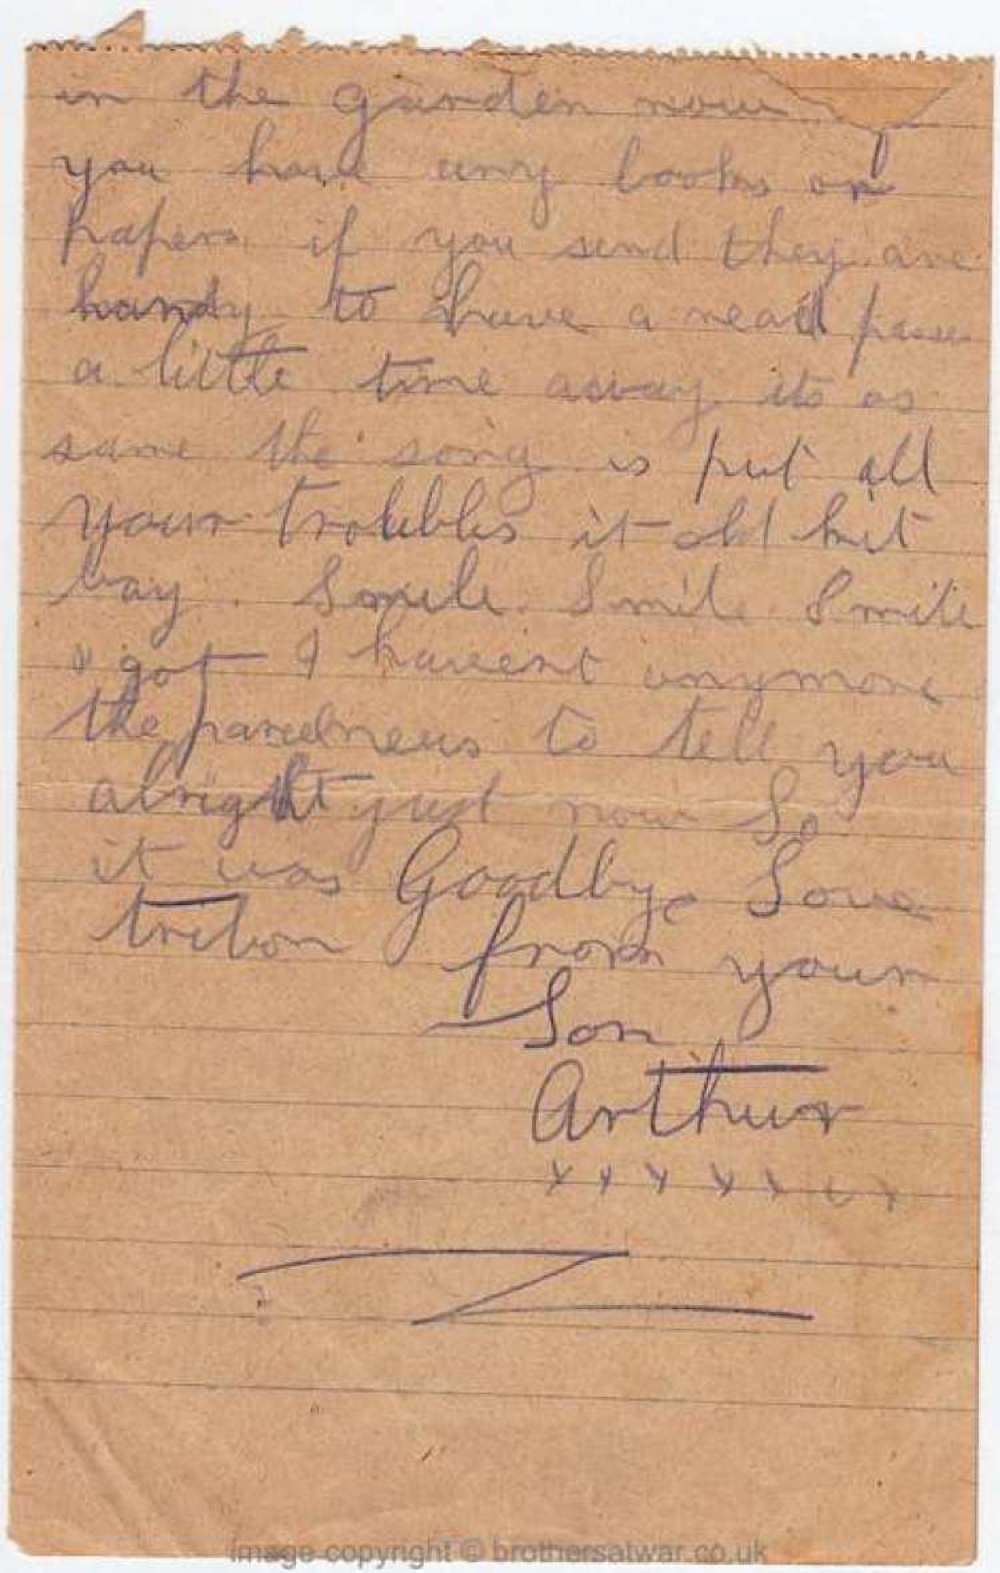 in the garden now
you have any books or
papers if you send they are
handy to have a read pass
a little time away its as
same the song is put all
your trolubles it old kit
bag. Smile. Smile Smile
I got I havent anymore
the parcel news to tell you
alright just now So
it was Goodbye Love
from your
Son
Arthur
x x x x x x x
image copyright © brothersatwar.co.uk